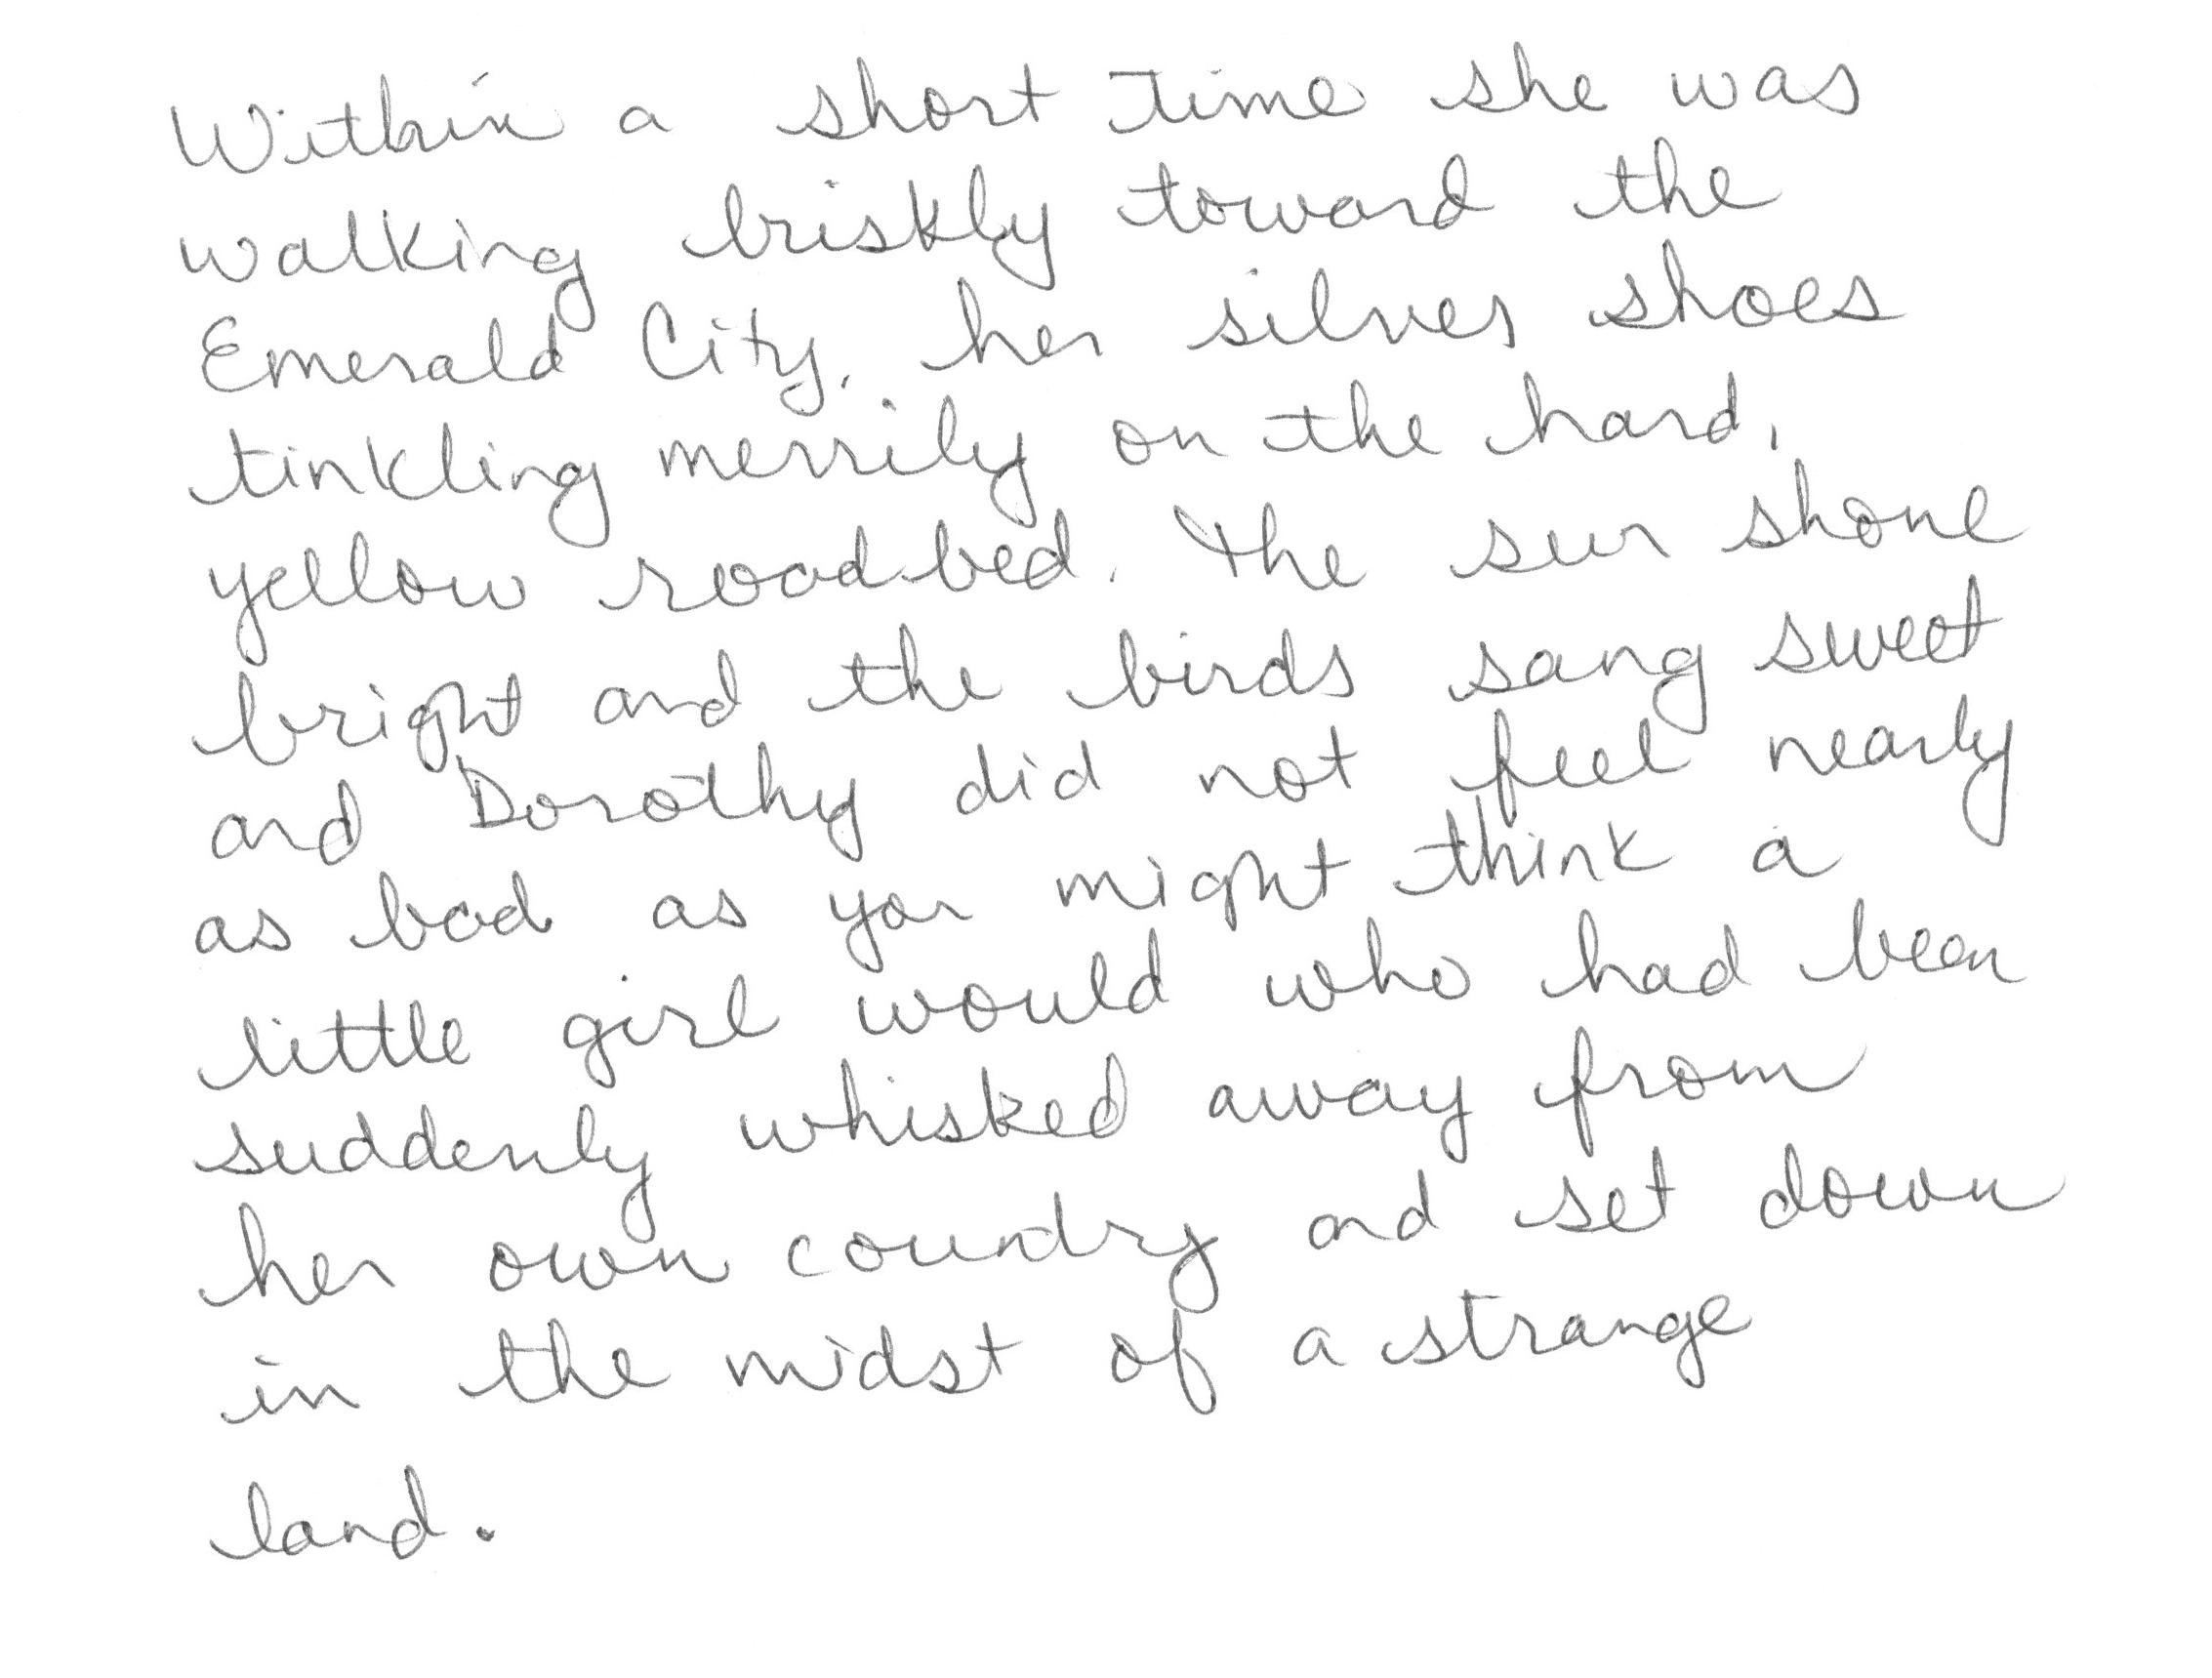 Within a short time she was
walking briskly toward the
Emerald City, her silver shoes
tinkling merrily on the hard,
yellow roadbed. The sun shone
bright and the birds sang sweet
and Dorothy did not feel nearly
as bad as you might think a
little girl would who had been
suddenly whisked away from
her own country and set down
in the midst of a strange
land.